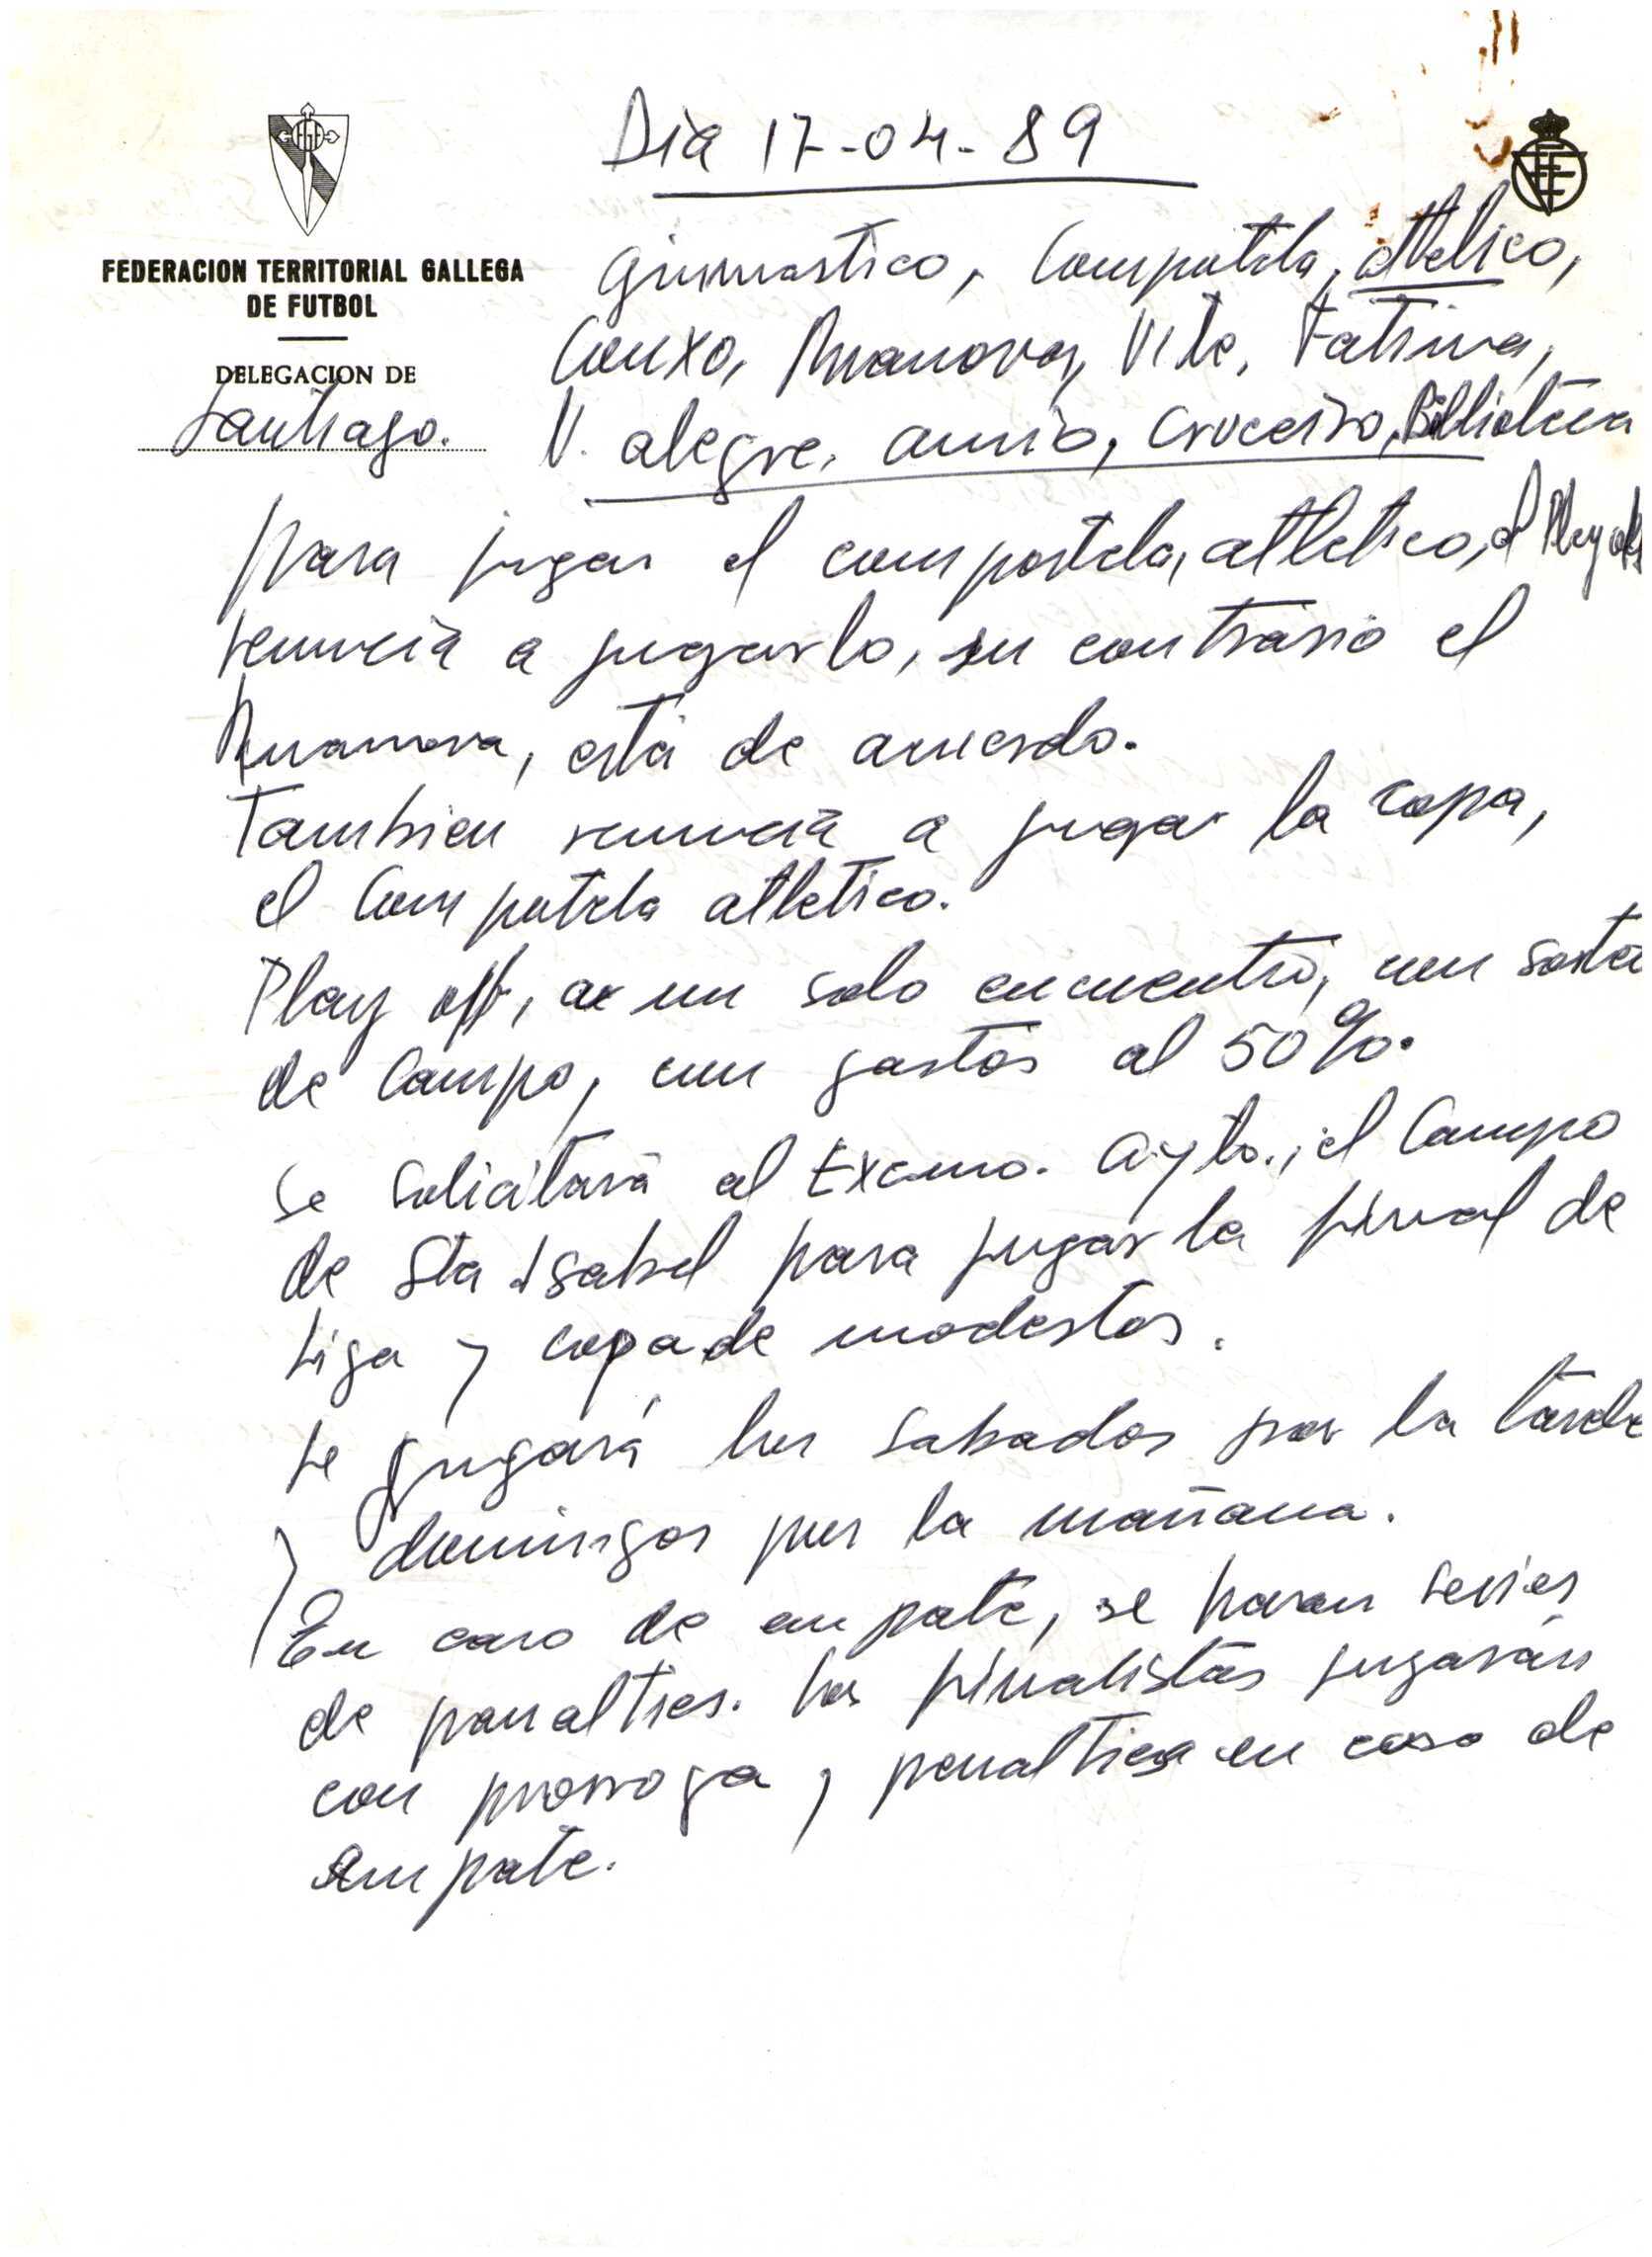 Dia 17-04-89
FEDERACION TERRITORIAL GALLEGA
DE FUTBOL
DELEGACION DE
Santiago.
Gimnastico, Compostela, atletico,
Conxo, Ruanova, Vite, Fatima,
V. alegre, amio, Cruceiro, Biblioteca
para jugar el compostela, atletico, el Play off
renuncia a jugarlo, su contrario el
Ruanova, está de acuerdo.
Tambien renuncia a jugar la copa,
el Compostela atletico.
Play off, a un solo encuentro, con sorteo
de Campo, con gastos al 50%.
Se solicitará al Excmo. Ayto., el Campo
de Sta Isabel para jugar la final de
Liga y copa de modestos.
Se jugará los sabados por la tarde
y domingos por la mañana.
En caso de empate, se haran series
de panalties. los finalistas jugarán
con prorroga y penalties en caso de
empate.